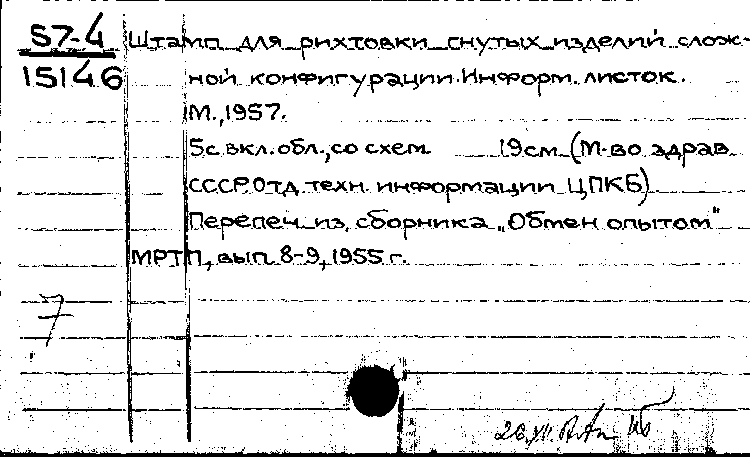 57-4
15146
Штамп для рихтовки гнутых изделий слож-
ной конфигурации. Информ. листок.
М., 1957.
5с. вкл. обл., со схем. 19см. (М-во здрав.
СССР. Отд. техн. информации ЦПКБ)
Перепеч. из сборника „Обмен опытом"
МРТП, вып. 8-9, 1955 г.
7